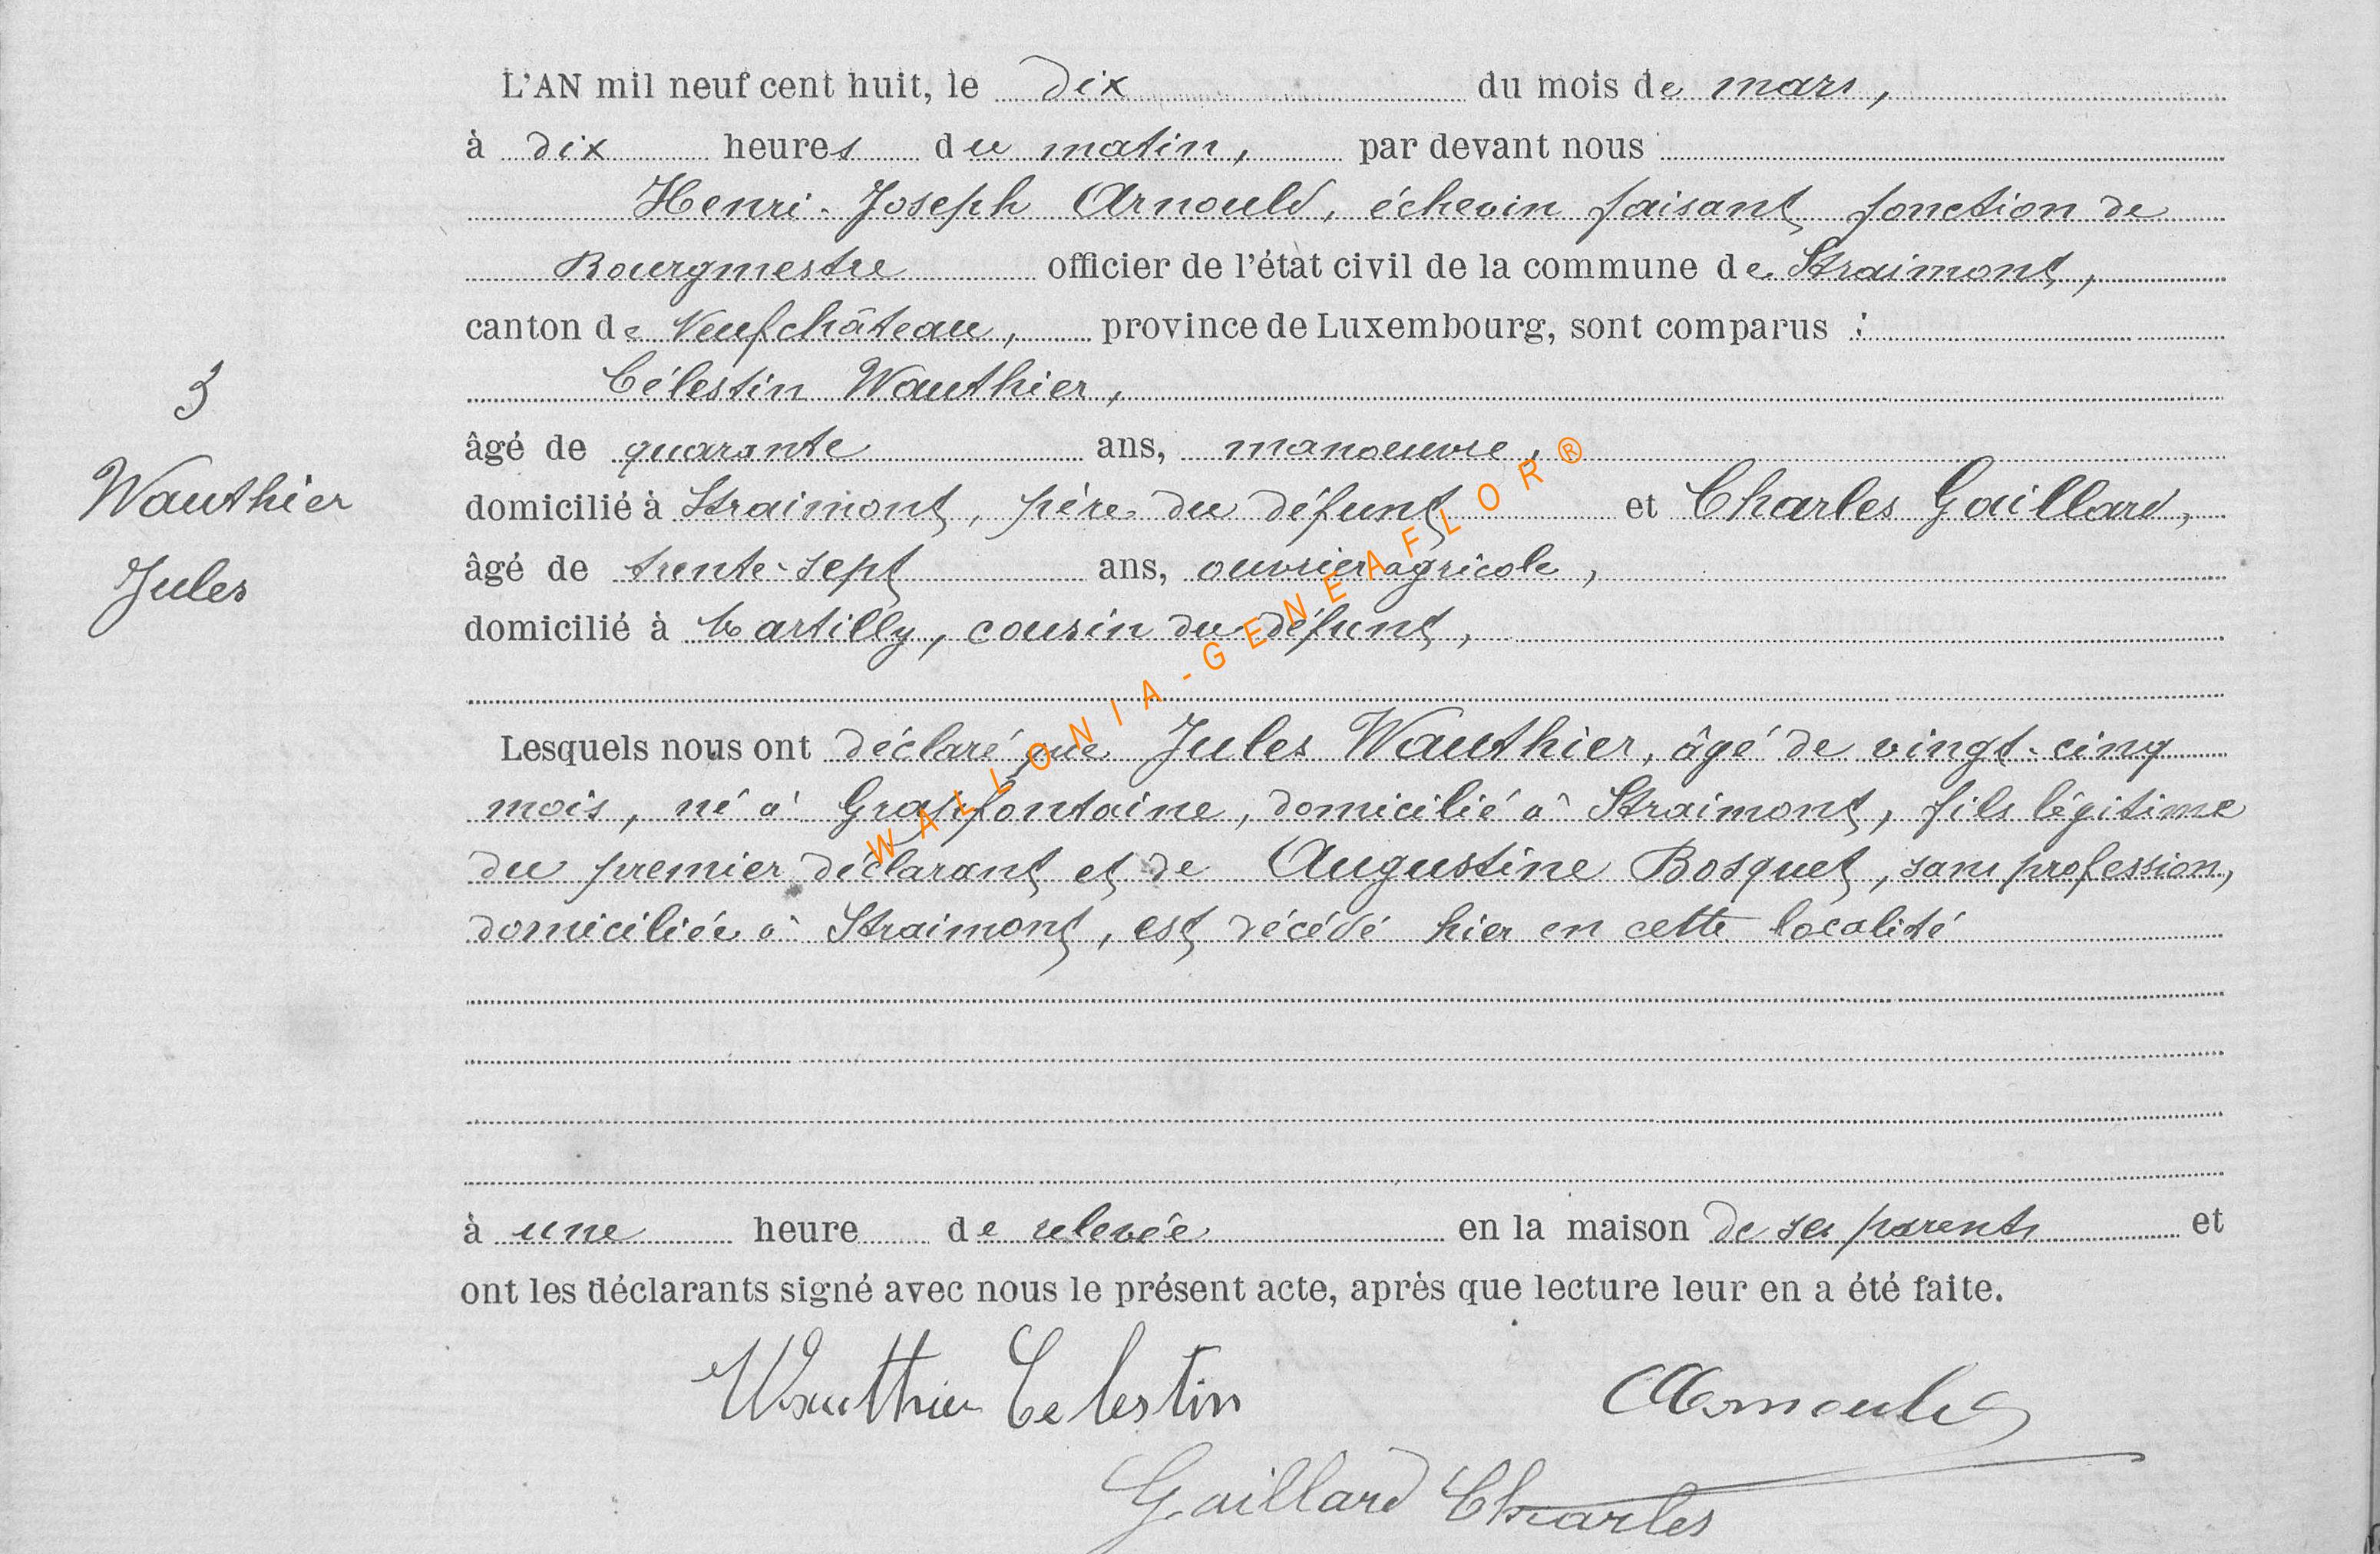 L'AN mil neuf cent huit, le dix du mois de mars,
à dix heures du matin, par devant nous
Henri-Joseph Arnould, échevin faisant fonction de
Bourgmestre officier de l'état civil de la commune de Straimont,
canton de Neufchâteau, province de Luxembourg, sont comparus :
Célestin Wauthier,
âgé de quarante ans, manoeuvre,
domicilié à Straimont, père du défunt et Charles Gaillard,
âgé de trente-sept ans, ouvrier agricole,
domicilié à Martilly, cousin du défunt,
3
Wauthier
Jules
Lesquels nous ont déclaré que Jules Wauthier, âgé de vingt-cinq
mois, né à Grapfontaine, domicilié à Straimont, fils légitime
du premier déclarant et de Augustine Bosquet, sans profession,
domiciliée à Straimont, est décédé hier en cette localité
à une heure de relevée en la maison de ses parents et
ont les déclarants signé avec nous le présent acte, après que lecture leur en a été faite.
Wauthier Celestin
Arnould
Gaillard Charles
WALLONIA-GENEAFLOR®